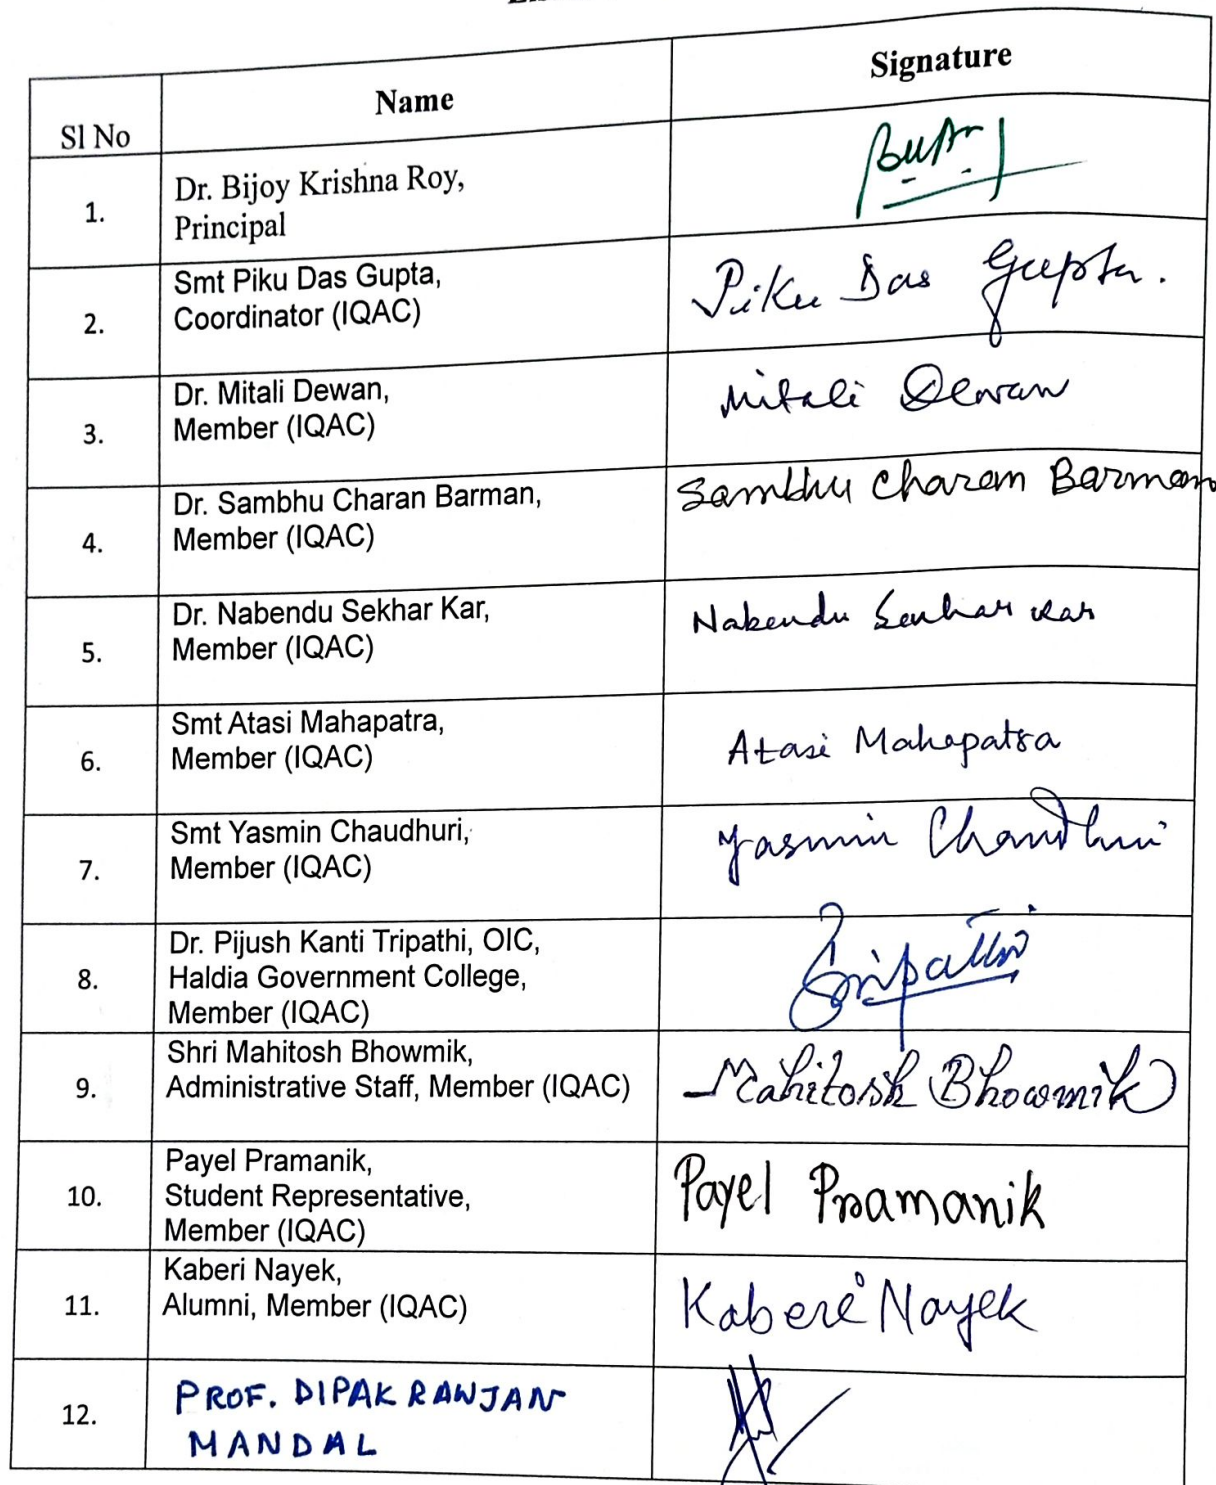 Name
Signature
Sl No
1.
Dr. Bijoy Krishna Roy,
Principal
2.
Smt Piku Das Gupta,
Coordinator (IQAC)
Piku Das Gupta.
3.
Dr. Mitali Dewan,
Member (IQAC)
Mitali Dewan
4.
Dr. Sambhu Charan Barman,
Member (IQAC)
Sambhu Charan Barman
5.
Dr. Nabendu Sekhar Kar,
Member (IQAC)
Nabendu Sekhar Kar
6.
Smt Atasi Mahapatra,
Member (IQAC)
Atasi Mahapatra
7.
Smt Yasmin Chaudhuri,
Member (IQAC)
Yasmin Chaudhuri
8.
Dr. Pijush Kanti Tripathi, OIC,
Haldia Government College,
Member (IQAC)
Tripathi
9.
Shri Mahitosh Bhowmik,
Administrative Staff, Member (IQAC)
Mahitosh Bhowmik
10.
Payel Pramanik,
Student Representative,
Member (IQAC)
Payel Pramanik
11.
Kaberi Nayek,
Alumni, Member (IQAC)
Kaberi Nayek
12.
PROF. DIPAK RANJAN
MANDAL